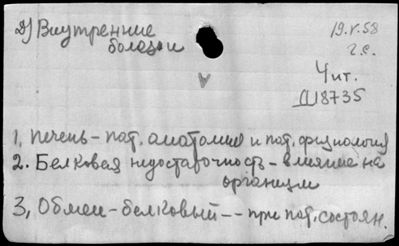 Д) Внутренние
болезни
19.V.58
г.е.
Чит.
Д18735
1, печень - пат. анатомия и пат. физиология
2. Белковая недостаточность - влияние на
организм
3, Обмен - белковый -- при пат. состоян.